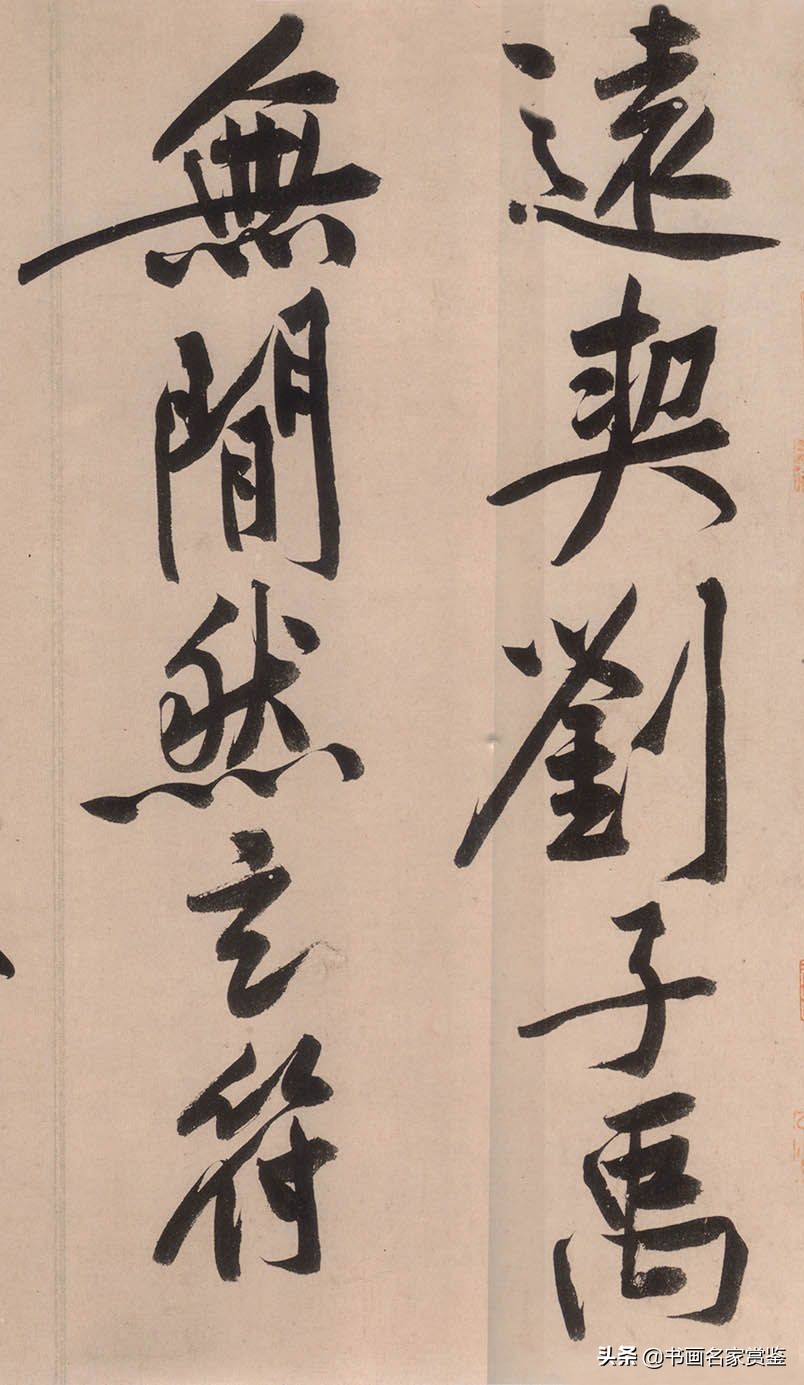 遠契劉子禹
無間然玄符
头条 @书画名家赏鉴